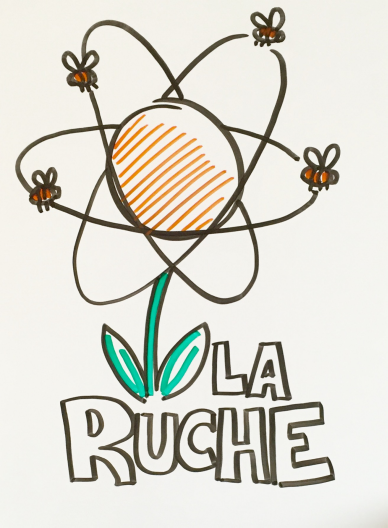 LA
RUCHE